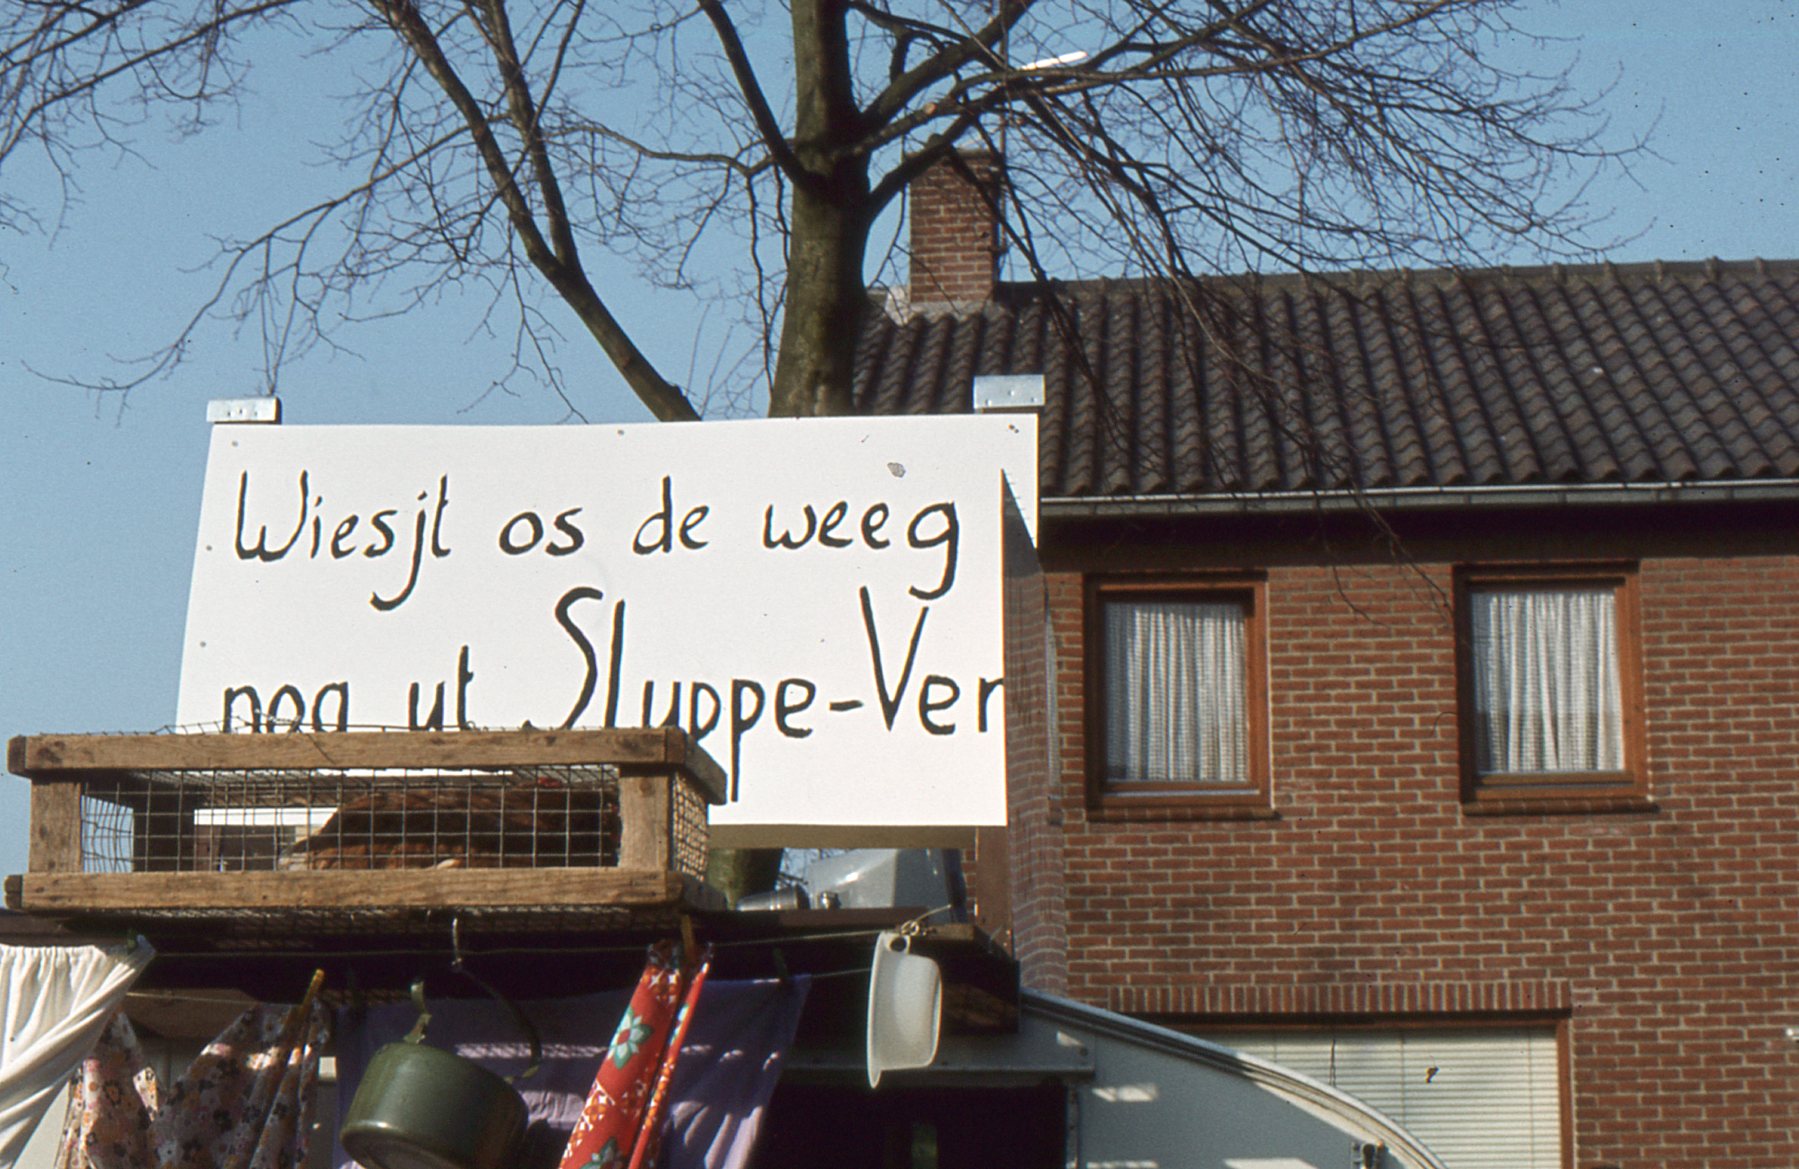 Wiesjt os de weeg
nog ut Sluppe-Ver